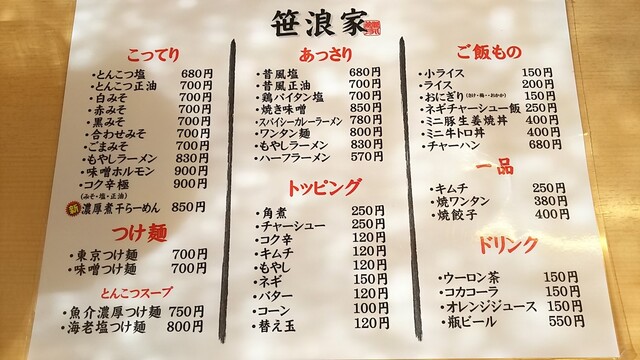 笹浪家
こってり
・とんこつ塩 680円
・とんこつ正油 700円
・白みそ 700円
・赤みそ 700円
・黒みそ 700円
・合わせみそ 700円
・ごまみそ 700円
・もやしラーメン 830円
・味噌ホルモン 900円
・コク辛極 900円
(みそ・塩・正油)
新 濃厚煮干らーめん 850円
つけ麺
・東京つけ麺 700円
・味噌つけ麺 700円
とんこつスープ
・魚介濃厚つけ麺 750円
・海老塩つけ麺 800円
あっさり
・昔風塩 680円
・昔風正油 700円
・鶏パイタン塩 700円
・焼き味噌 850円
・スパイシーカレーラーメン 780円
・ワンタン麺 800円
・もやしラーメン 830円
・ハーフラーメン 570円
トッピング
・角煮 250円
・チャーシュー 250円
・コク辛 120円
・キムチ 120円
・もやし 120円
・ネギ 150円
・バター 120円
・コーン 100円
・替え玉 120円
ご飯もの
・小ライス 150円
・ライス 200円
・おにぎり 150円
・ネギチャーシュー飯 250円
・ミニ豚生姜焼丼 400円
・ミニ牛トロ丼 400円
・チャーハン 680円
一品
・キムチ 250円
・焼ワンタン 380円
・焼餃子 400円
ドリンク
・ウーロン茶 150円
・コカコーラ 150円
・オレンジジュース 150円
・瓶ビール 550円